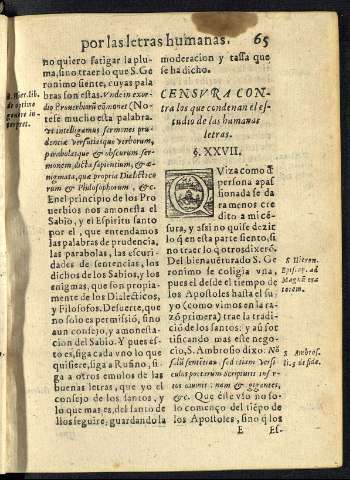 por las letras humanas. 65
no quiero fatigar la plu-
ma, sino traer lo que S. Ge
ronimo siente, cuyas pala
bras son estas. Vnde in exor
dio Prouerbiorũ cõmonet (No-
tese mucho esta palabra.
Vt intelligamus sermones pru-
dentiæ versutiasque verborum,
parabolasque & obscurum ser-
monem, dicta sapientium, & æ-
nigmata, quæ propria Dialectico
rum & Philosophorum, &c.
En el principio de los Pro
uerbios nos amonesta el
Sabio, y el Espiritu santo
por el, que entendamos
las palabras de prudencia,
las parabolas, las escuri
dades de sentencias, los
dichos de los Sabios, y los
enigmas, que son propia
mente de los Dialecticos,
y Filosofos. De suerte, que
no solo es permissiõ, sino
aun consejo, y amonesta-
cion del Sabio. Y pues es-
to es, siga cada vno lo que
quisiere, siga a Rufino, si-
ga a otros emulos de las
buenas letras, que yo el
consejo de los santos, y
lo que mas es, del santo de
llos seguire, guardando la
S. Hier. lib.
de optimo
genere in-
terpret.
moderacion y tassa que
se ha dicho.
CENSVRA CON-
tra los que condenan el es-
tudio de las humanas
letras.
§. XXVII.
QViza como ã
persona apas
sionada se da
ra menos cre
dito a mi cẽ
sura, y assi no quise dezir
lo q̃ en esta parte siento, si
no traer lo q̃ otros dixerõ.
Del bienauẽturado S. Ge
ronimo se coligia vna,
pues el desde el tiempo de
los Apostoles hasta el su-
yo (como vimos en la ra-
zõ primera) trae la tradi
ciõ de los santos: y aũ for
tificando mas este nego-
cio, S. Ambrosio dixo. Nõ
solũ sententias sed etiam versi
culos poetarum Scripturis inser-
tos ausmit: nam & gigantes,
&c. Que este vso no so-
lo començo del tiẽpo de
los Apostoles, sino q̃ los
S. Hieron.
Epist. ad
Magnũ ora
torem.
S. Ambros.
li. 3. de fide.
E Es-